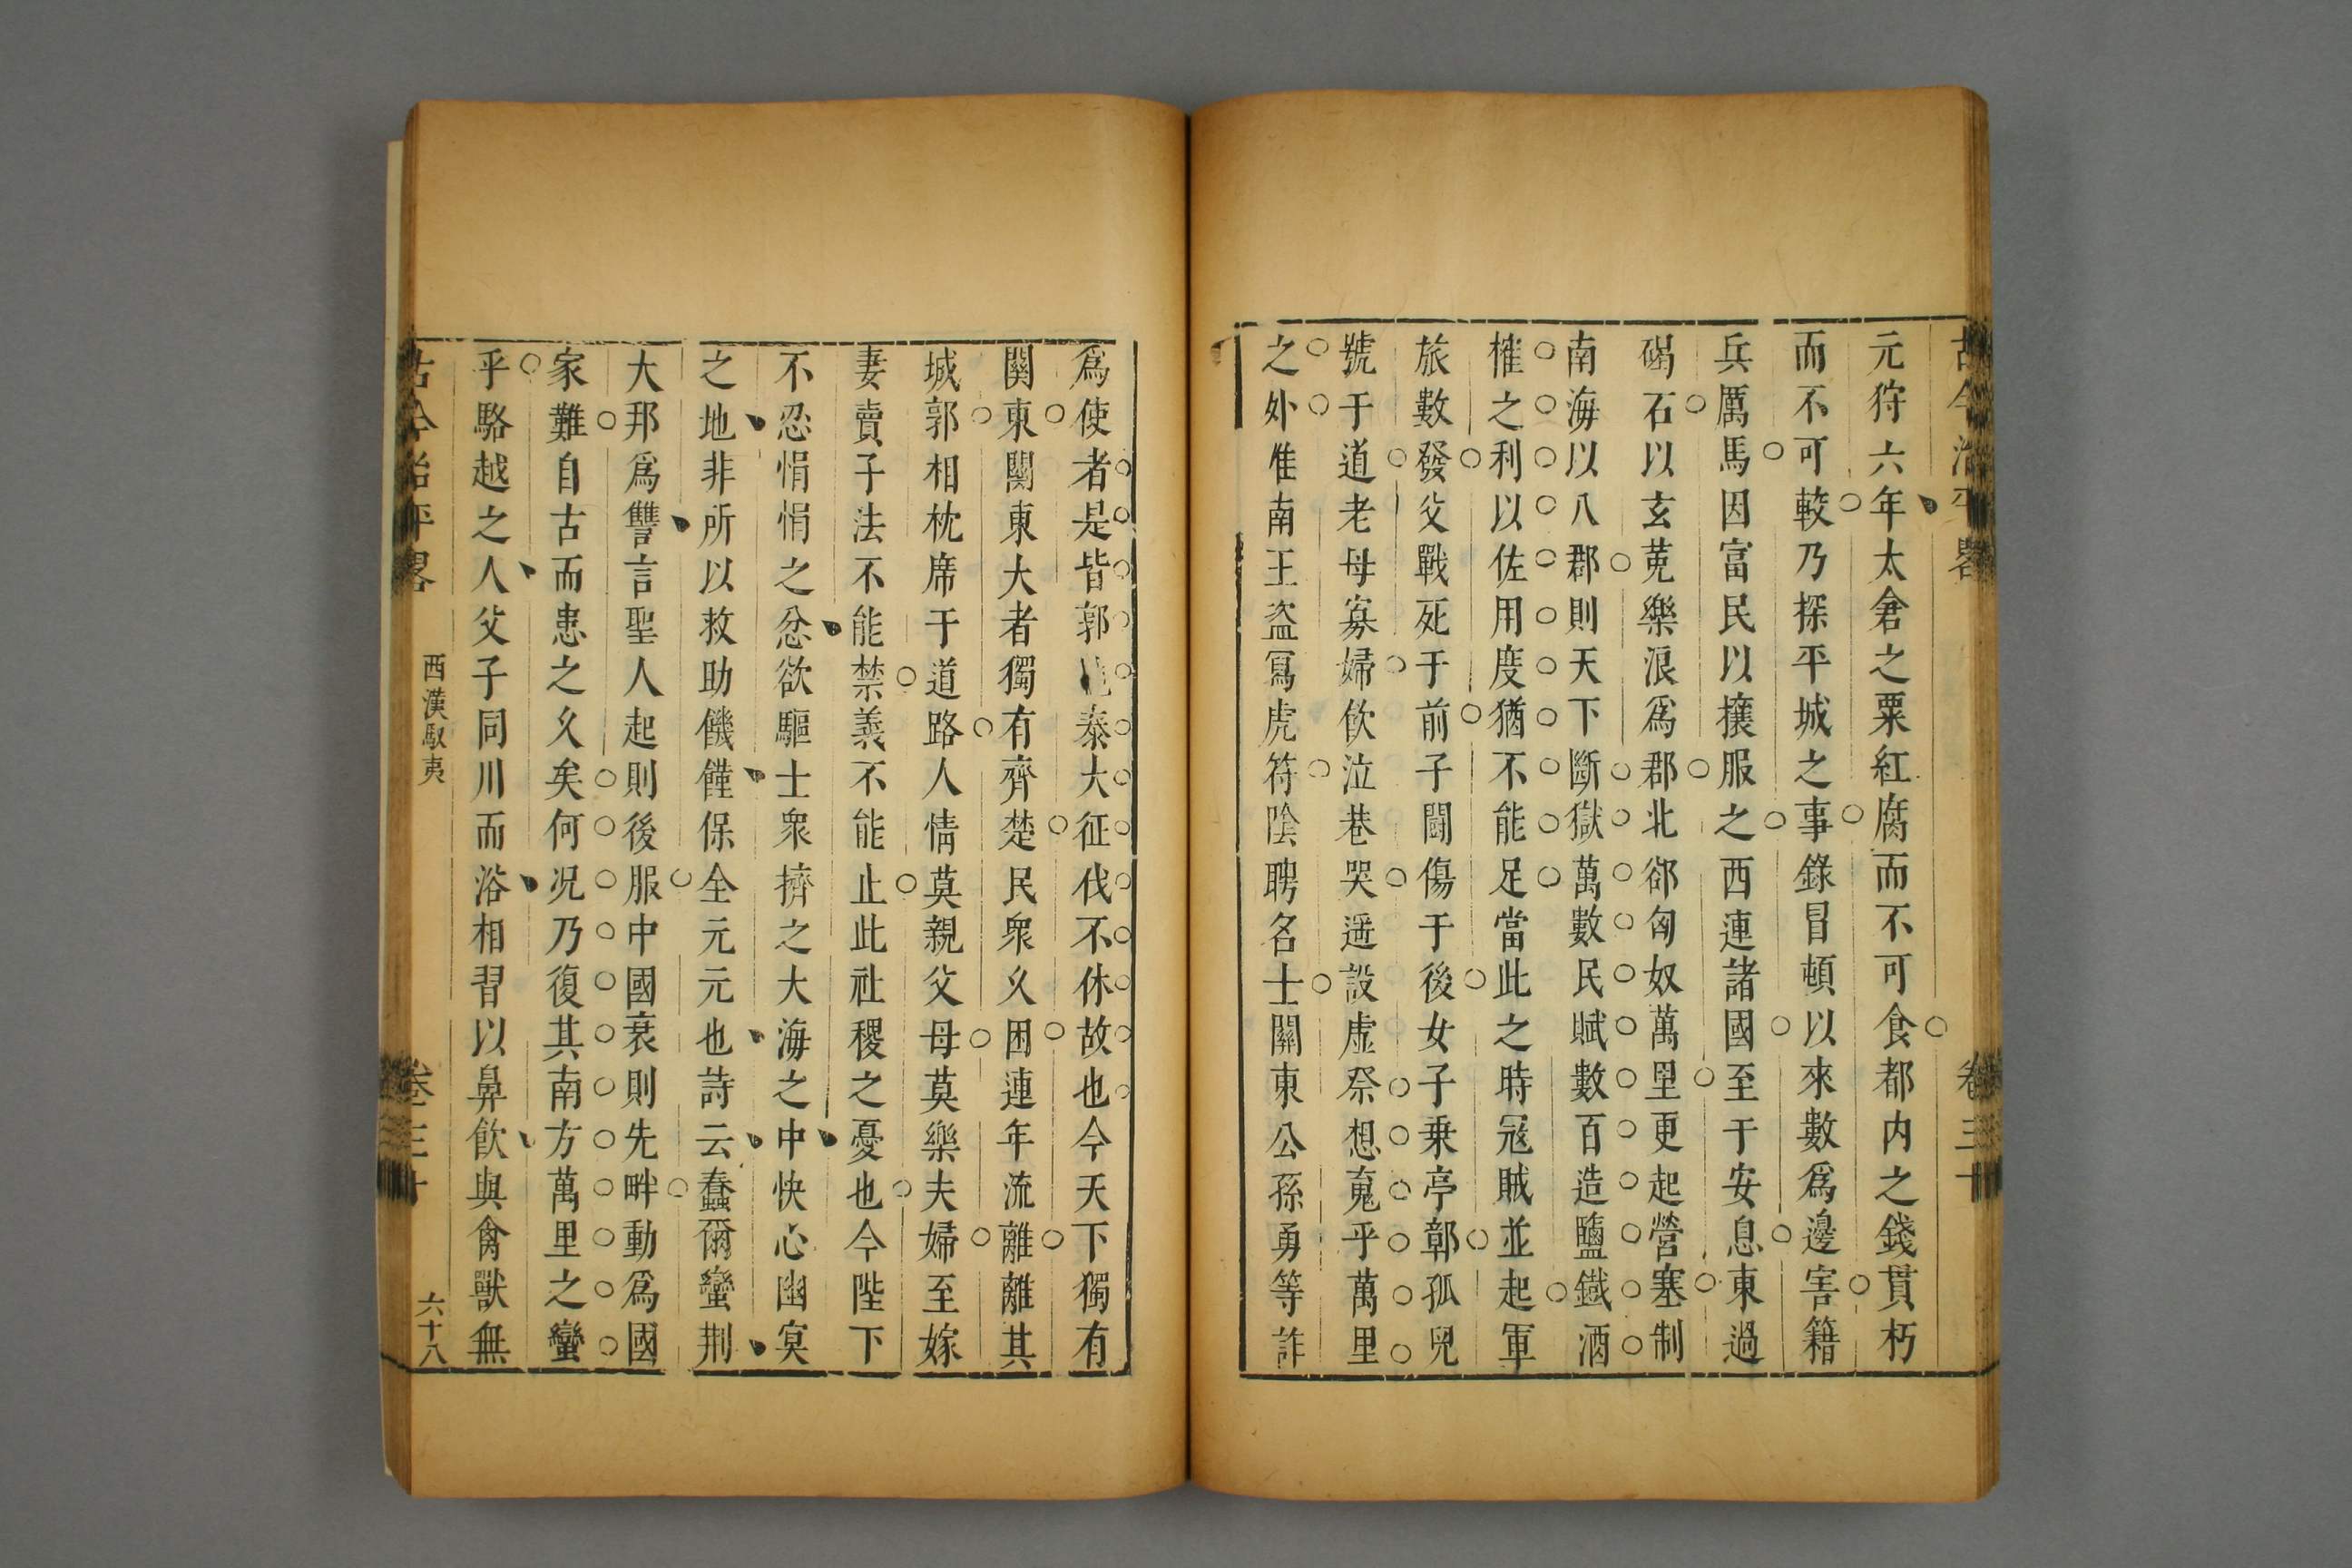 古今治平畧 卷三十
元狩六年太倉之粟紅腐而不可食都内之錢貫朽
而不可較乃探平城之事錄冒頓以來數爲邊害籍
兵厲馬因富民以攘服之西連諸國至于安息東過
碣石以玄菟樂浪爲郡北郤匈奴萬里更起營塞制
南海以八郡則天下斷獄萬數民賦數百造鹽鐵酒
榷之利以佐用度猶不能足當此之時冦賊並起軍
旅數發父戰死于前子鬪傷于後女子乗亭鄣孤兒
號于道老母寡婦飲泣巷哭遥設虚祭想䰟乎萬里
之外淮南王盗寫虎符陰聘名士關東公孫勇等詐
爲使者是皆郭地泰大征伐不休故也今天下獨有
関東關東大者獨有齊楚民衆乆困連年流離離其
城郭相枕席于道路人情莫親父母莫樂夫婦至嫁
妻賣子法不能禁義不能止此社稷之憂也今陛下
不忍悁悁之忿欲驅士衆擠之大海之中快心幽㝠
之地非所以救助饑饉保全元元也詩云蠢爾蠻荆
大邦爲讐言聖人起則後服中國衰則先畔動爲國
家難自古而患之乆矣何况乃復其南方萬里之蠻
乎駱越之人父子同川而浴相習以鼻飲與禽獸無
古今治平畧 西漢馭夷 卷三十 六十八